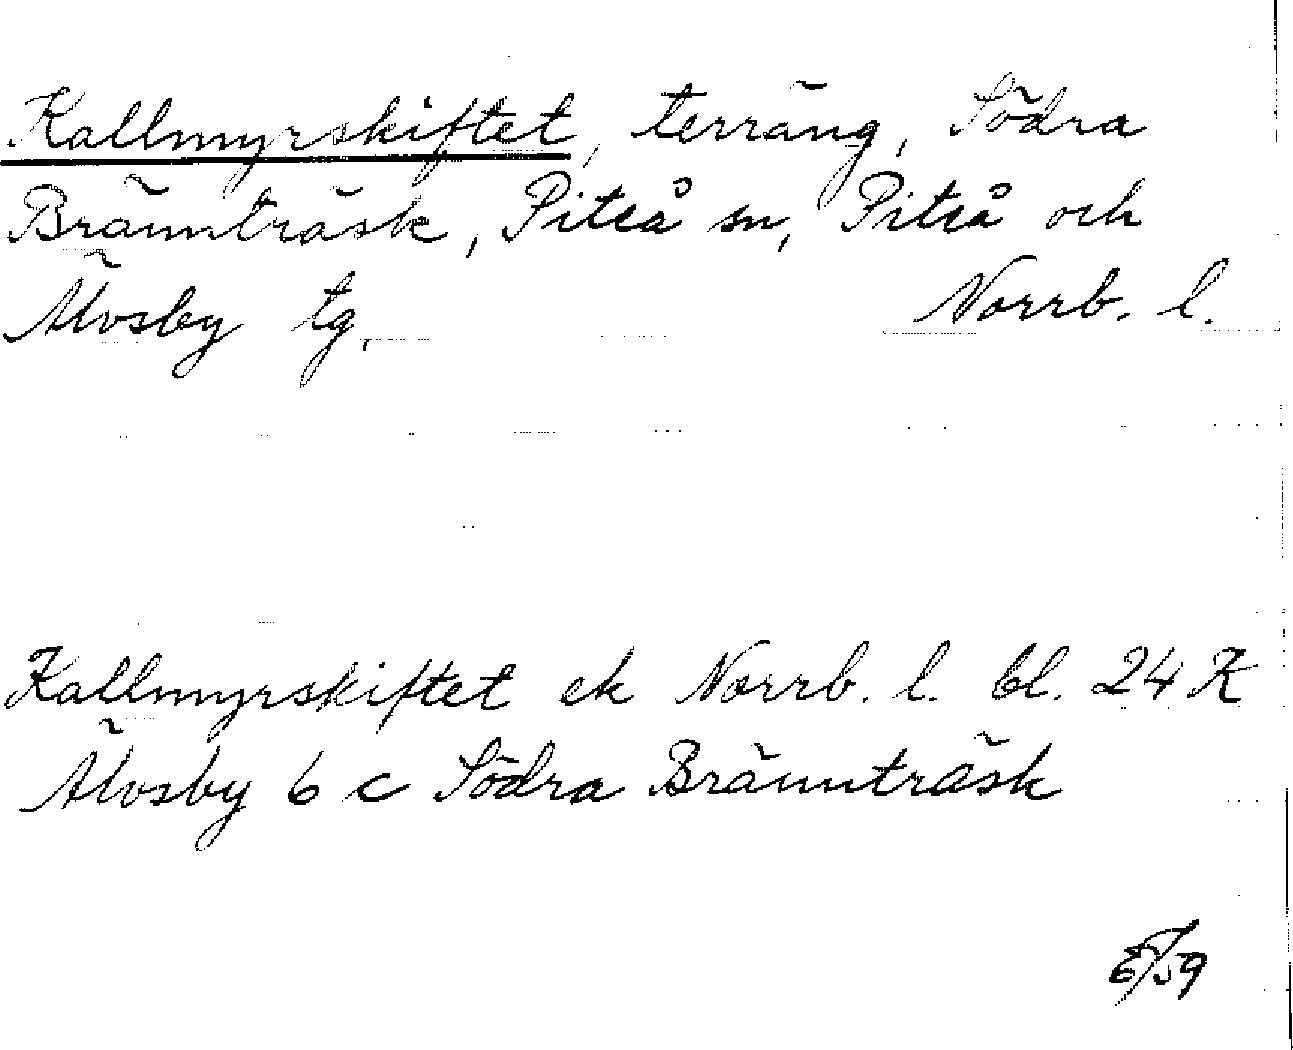 Kallmyrskiftet, terräng, Södra
Brännträsk, Piteå sn, Piteå och
Älvsby tg, Norrb. l.
Kallmyrskiftet ek Norrb. l. bl. 24 K
Älvsby 6 c Södra Brännträsk